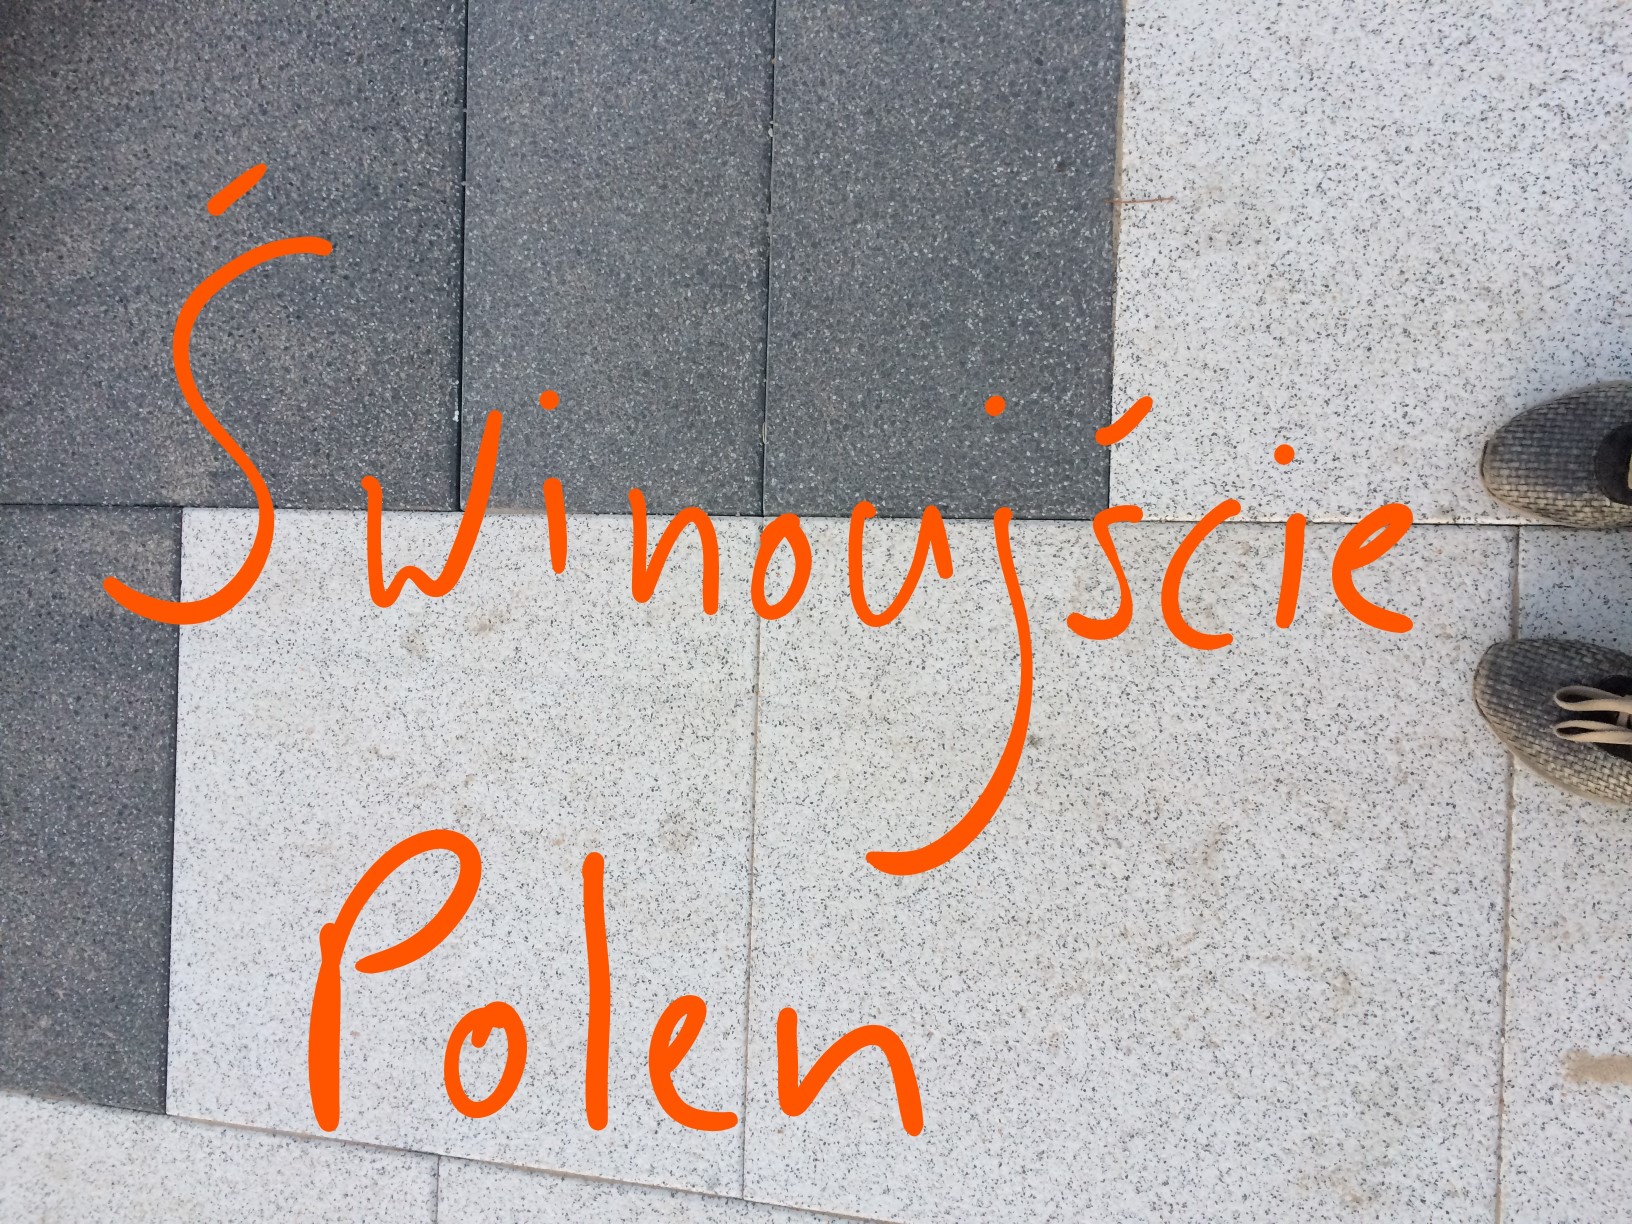 Świnoujście
Polen